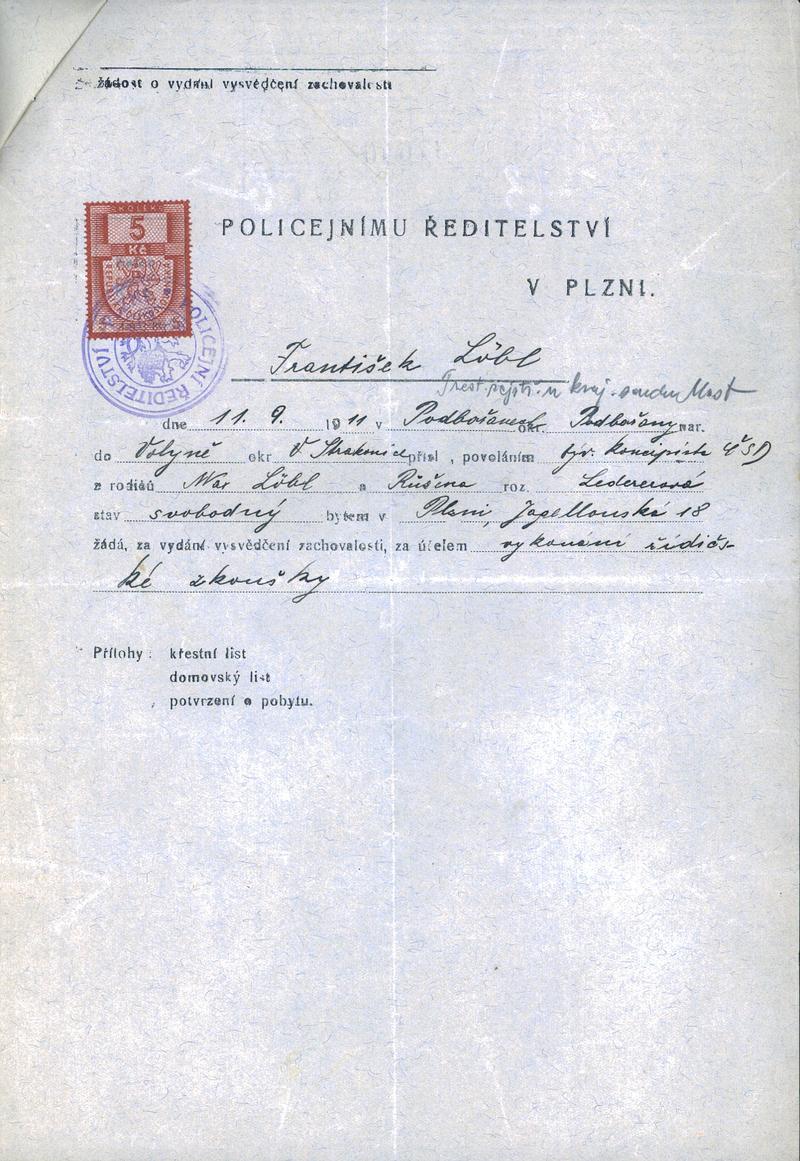 žádost o vydání vysvědčení zachovalosti
KOLEK
5
Kč
POLICEJNÍ ŘEDITELSTVÍ
POLICEJNÍMU ŘEDITELSTVÍ
V PLZNI.
František Löbl
Trest. rejstř. u kraj. soudu Most
dne 11. 9. 1911 v Podbořanech okr. Podbořany nar.
do Volyně okr V Strakonice přísl , povoláním býv. koncipista ČSD
z rodičů Max Löbl a Růžena roz. Ledererová
stav svobodný bytem v Plzni, Jagellonská 18
žádá, za vydání vysvědčení zachovalosti, za účelem vykonání řidičs-
ké zkoušky
Přílohy : křestní list
domovský list
potvrzení o pobytu.